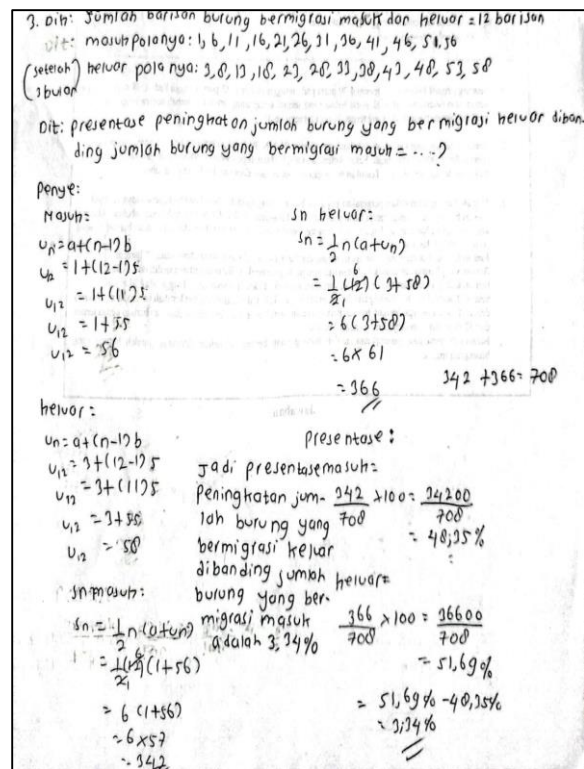 3. Dik: Jumlah barisan burung bermigrasi masuk dan keluar = 12 barisan
Dit: masuk polanya: 1, 6, 11, 16, 21, 26, 31, 36, 41, 46, 51, 56
(setelah 3 bulan) keluar pola nya: 3, 8, 13, 18, 23, 28, 33, 38, 43, 48, 53, 58
Dit: presentase peningkatan jumlah burung yang bermigrasi keluar diban-
ding jumlah burung yang bermigrasi masuk = ....?
Penye:
Masuk:
Un = a+(n-1)b
U12 = 1+(12-1)5
U12 = 1+(11)5
U12 = 1+55
U12 = 56
keluar:
Un = a+(n-1)b
U12 = 3+(12-1)5
U12 = 3+(11)5
U12 = 3+55
U12 = 58
Sn masuk:
Sn = 1/2 n(a+un)
= 1/2 (12) 6 1 (1+56)
= 6 (1+56)
= 6 x 57
= 342
Sn keluar:
Sn = 1/2 n (a+un)
= 1/2 (12) 6 1 (3+58)
= 6 (3+58)
= 6 x 61
= 366
342 + 366 = 708
Presentase:
Jadi presentase masuk=
Peningkatan jum-
lah burung yang
bermigrasi keluar
dibanding jumlah
burung yang ber-
migrasi masuk
adalah 3,34%
342/708 x100 = 34200/708
= 48,35%
keluar=
366/708 x100 = 36600/708
= 51,69%
= 51,69% - 48,35%
= 3,34%